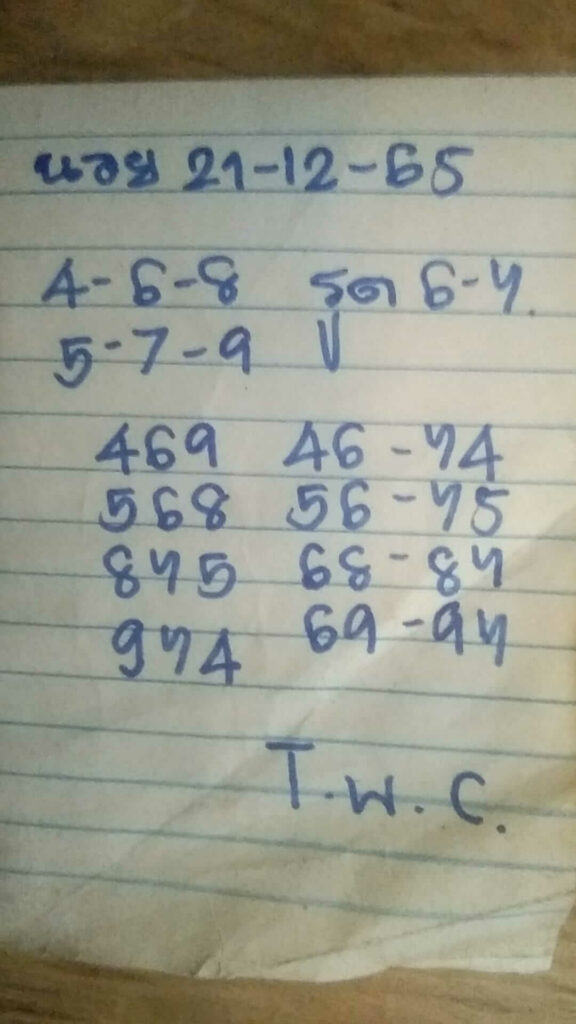 นอย 21-12-65
4-6-8 รูด 6-7.
5-7-9
469 46-74
568 56-75
875 68-87
974 69-97
T.W.C.